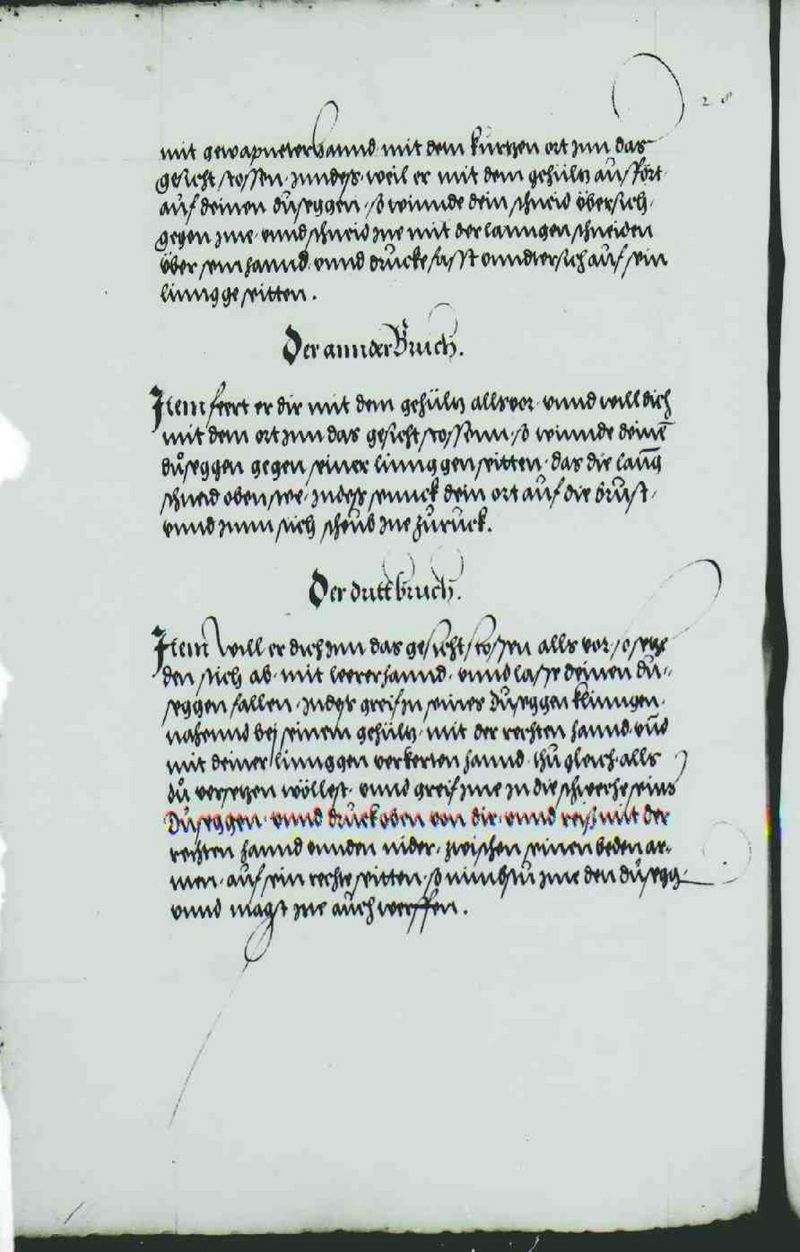 28
mit gewapneter hannd mit dem kurtzen ort jnn das
gesicht stossen · jnndess weil er mit dem gehültz aufffört
auf deinen dusseggen · so winnde dein schneid übersich ·
gegen jme · vnnd schneid jme mit der lanngen schneiden
über sein hannd vnnd drucke fasst vnndtersich auf sein
linngge seitten .
Der annder Bruch .
Item feert er dir mit dem gehültz alls vor · vnnd will dich
mit dem ort jnn das gesicht stossenn · so winnde deinē
dussеggen gegen seiner linnggen seitten · das die lanng
schneid oben stee · jndess senck dein ort auf die brust ·
vnnd jnn stich scheub jne zuruck .
Der dritt bruch .
Item will er dich jnn das gesicht stossen alls vor · so setz
den stich ab · mit leerer hannd · vnnd lasse deinen du-
seggen fallen · jndess greif jn seines dusseggen klinngen ·
nahennd bej seinem gehültz · mit der rechten hannd · vnd
mit deiner linnggen verkerten hannd · thu gleich alls
du versetzen wöllest · vnnd greif jme jn die schwerhe seins
dusseggen · vnnd druck oben von dir · vnnd reiss mit der
rechten hannd vnnden nider · zwischen seinen beden ar-
men · auf sein rechte seitten · so nimbstu jme den dusegg
vnnd magst jne auch werffen .